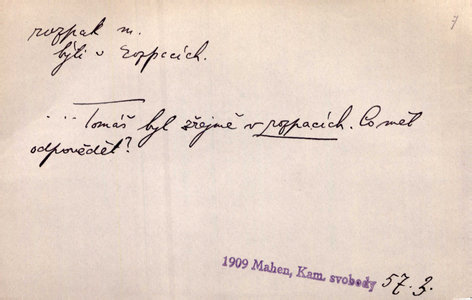 7
rozpak m.
býti v rozpacích.
... Tomáš byl zřejmě v rozpacích. Co měl
odpovědět?
1909 Mahen, Kam. svobody 57.3.